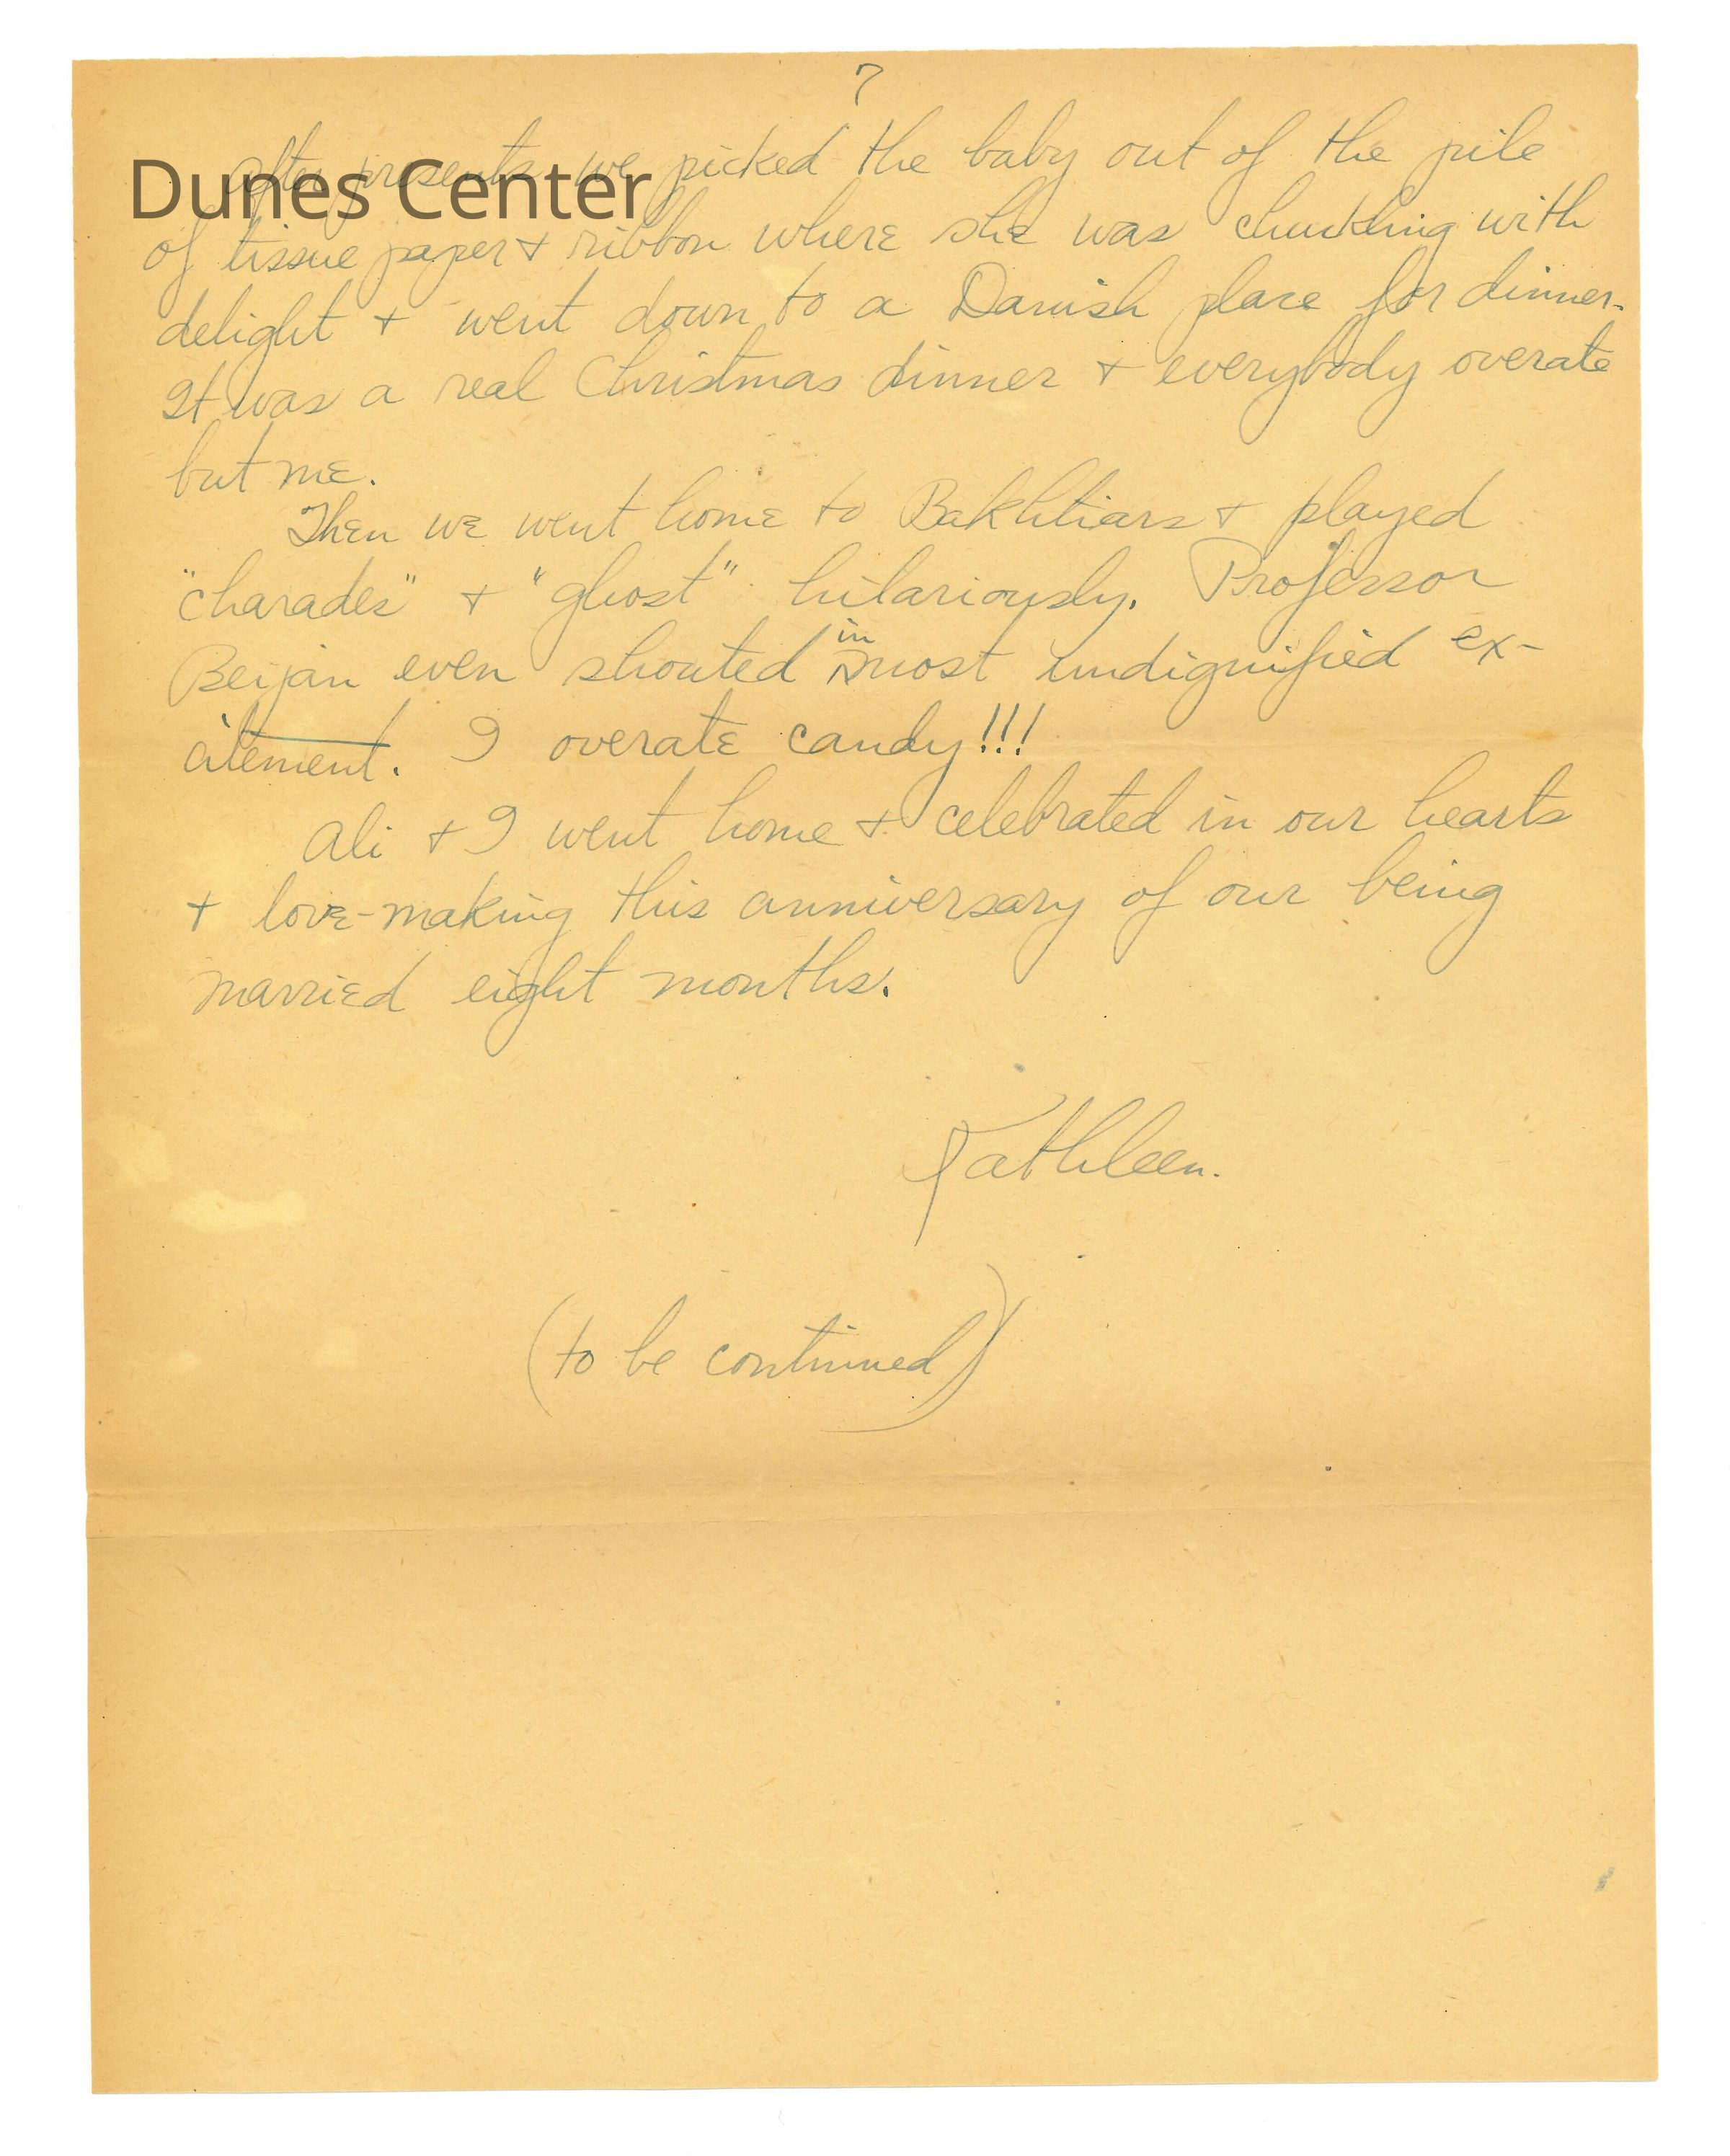 7
After presents we picked the baby out of the pile
Dunes Center
of tissue paper + ribbon where she was chuckling with
delight + went down to a Danish place for dinner.
It was a real Christmas dinner + everybody overate
but me.
Then we went home to Bakhtiars + played
"charades" + "ghost" hilariously. Professor
Beijan even shouted in most undignified ex-
citement. I overate candy!!!
Ali + I went home + celebrated in our hearts
+ love-making this anniversary of our being
married eight months.
Kathleen.
(to be continued)